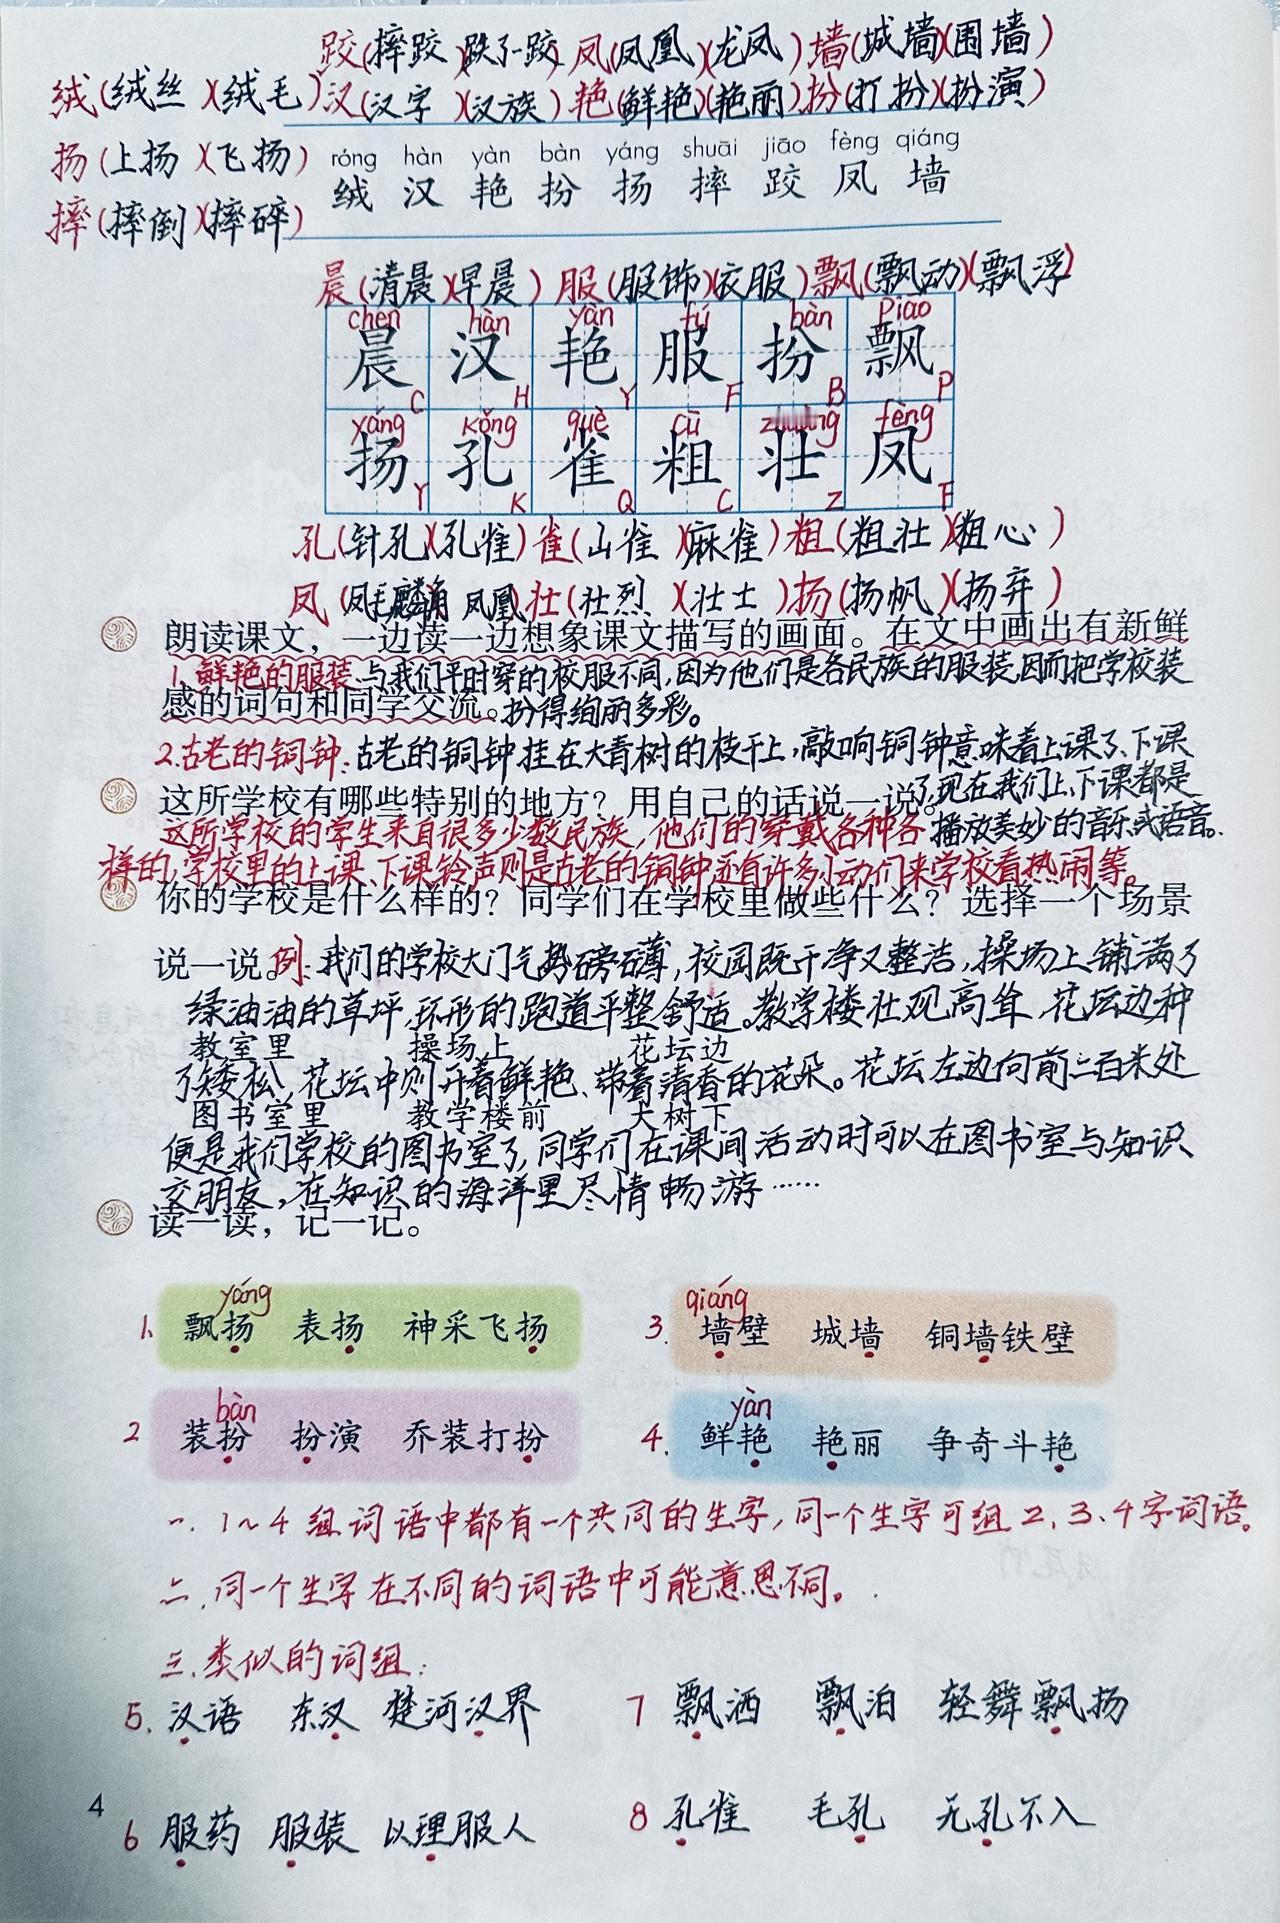 跤(摔跤)(跌了一跤) 凤(凤凰)(龙凤) 墙(城墙)(围墙)
绒(绒丝)(绒毛) 汉(汉字)(汉族) 艳(鲜艳)(艳丽) 扮(打扮)(扮演)
扬(上扬)(飞扬)
róng hàn yàn bàn yáng shuāi jiāo fèng qiáng
绒 汉 艳 扮 扬 摔 跤 凤 墙
摔(摔倒)(摔碎)
晨(清晨)(早晨) 服(服饰)(衣服) 飘(飘动)(飘浮)
chen hàn yàn fú bàn piāo
晨 汉 艳 服 扮 飘
C H Y F B P
yáng kǒng què cū zhuàng fèng
扬 孔 雀 粗 壮 凤
Y K Q C Z F
孔(针孔)(孔雀) 雀(山雀)(麻雀) 粗(粗壮)(粗心)
凤(凤毛麟角 凤凰) 壮(壮烈)(壮士) 扬(扬帆)(扬弃)
朗读课文，一边读一边想象课文描写的画面。在文中画出有新鲜
1、鲜艳的服装:与我们平时穿的校服不同,因为他们是各民族的服装,因而把学校装
感的词句和同学交流。扮得绚丽多彩。
2.古老的铜钟:古老的铜钟挂在大青树的枝干上,敲响铜钟意味着上课了、下课
这所学校有哪些特别的地方？用自己的话说一说。了,现在我们上、下课都是
这所学校的学生来自很多少数民族,他们的穿戴各种各 播放美妙的音乐或语音。
样的,学校里的上课、下课铃声则是古老的铜钟还有许多小动们来学校看热闹等。
你的学校是什么样的？同学们在学校里做些什么？选择一个场景
说一说。例:我们的学校大门气势磅礴,校园既干净又整洁,操场上铺满了
绿油油的草坪,环形的跑道平整舒适。教学楼壮观高耸,花坛边种
教室里 操场上 花坛边
了矮松、花坛中则开着鲜艳、带着清香的花朵。花坛左边向前二百米处
图书室里 教学楼前 大树下
便是我们学校的图书室了,同学们在课间活动时可以在图书室与知识
交朋友,在知识的海洋里尽情畅游……
读一读，记一记。
yáng
1、飘扬 表扬 神采飞扬
qiáng
3. 墙壁 城墙 铜墙铁壁
bàn
2 装扮 扮演 乔装打扮
yàn
4. 鲜艳 艳丽 争奇斗艳
一. 1~4组词语中都有一个共同的生字,同一个生字可组2、3、4字词语。
二.同一个生字在不同的词语中可能意思不同。
三.类似的词组:
5. 汉语 东汉 楚河汉界
7 飘洒 飘泊 轻舞飘扬
4
6 服药 服装 以理服人
8 孔雀 毛孔 无孔不入